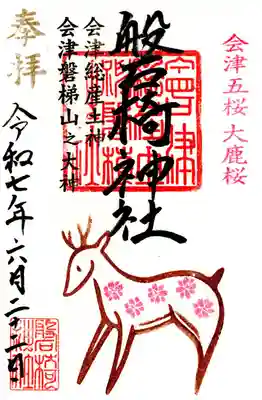 会津五桜 大鹿桜
磐椅神社
会津総産土神
会津磐梯山之大神
奉拝
令和七年六月二十一日